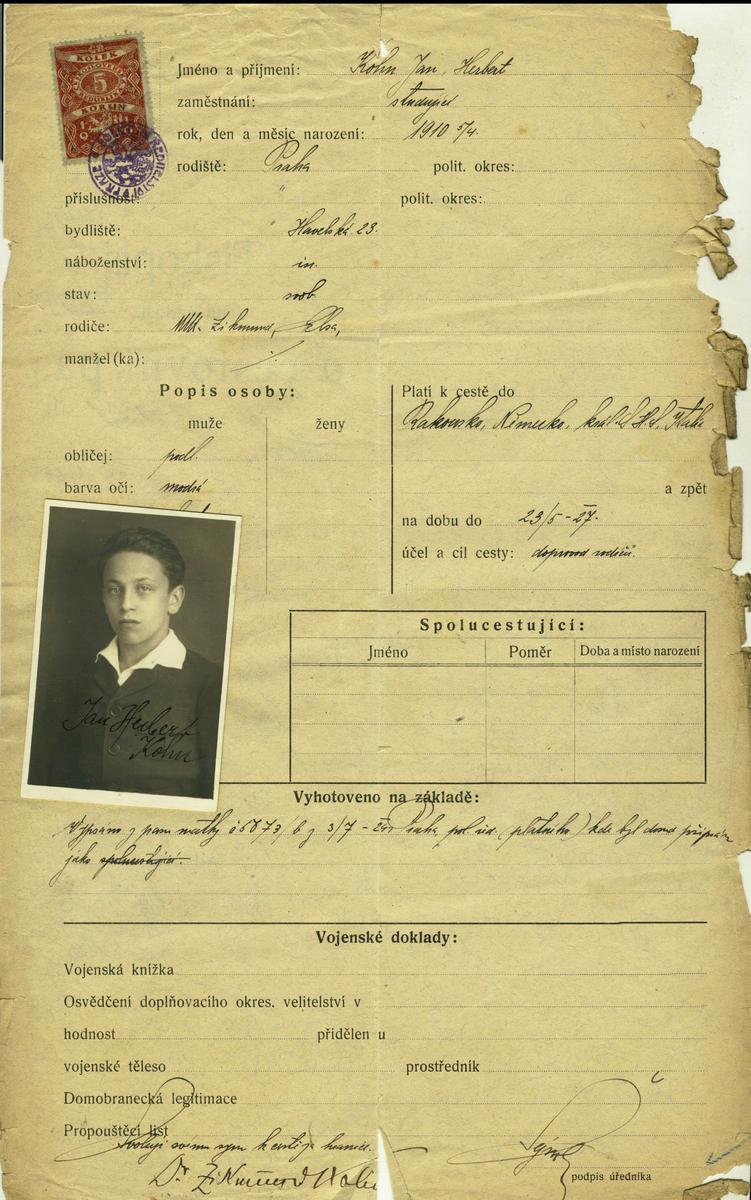 KOLEK
5
KORUN
Jméno a příjmení: Kohn Jan, Herbert
zaměstnání: studující
rok, den a měsíc narození: 1910 5/4.
rodiště: Praha polit. okres:
příslušnost: " polit. okres:
bydliště: Havelská 23.
náboženství:
stav: svob.
rodiče: Zikmund, Elsa,
manžel(ka): ·/.
Popis osoby:
muže ženy
obličej: podl.
barva očí: modrá
Platí k cestě do
Rakousko, Německo, král. Itálie
a zpět
na dobu do 23/5 - 27.
účel a cíl cesty: doprovod rodičů.
Jan Herbert
Kohn
Spolucestující:
Jméno Poměr Doba a místo narození
Vyhotoveno na základě:
z pasu matky 3/7 Praha, pol. (platného) kde byl
jako spolucestující.
Vojenské doklady:
Vojenská knížka
Osvědčení doplňovacího okres. velitelství v
hodnost přidělen u
vojenské těleso prostředník
Domobranecká legitimace
Propouštěcí list
Svoluji svému synu k cestě
Dr Zikmund Kohn
podpis úředníka